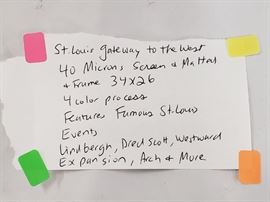 St. Louis Gateway to the West
40 Microns Screen & Matted
& Frame 34x26
4 color process
Features Famous St. Louis
Events
Lindbergh, Dred Scott, Westward
Expansion, Arch & More